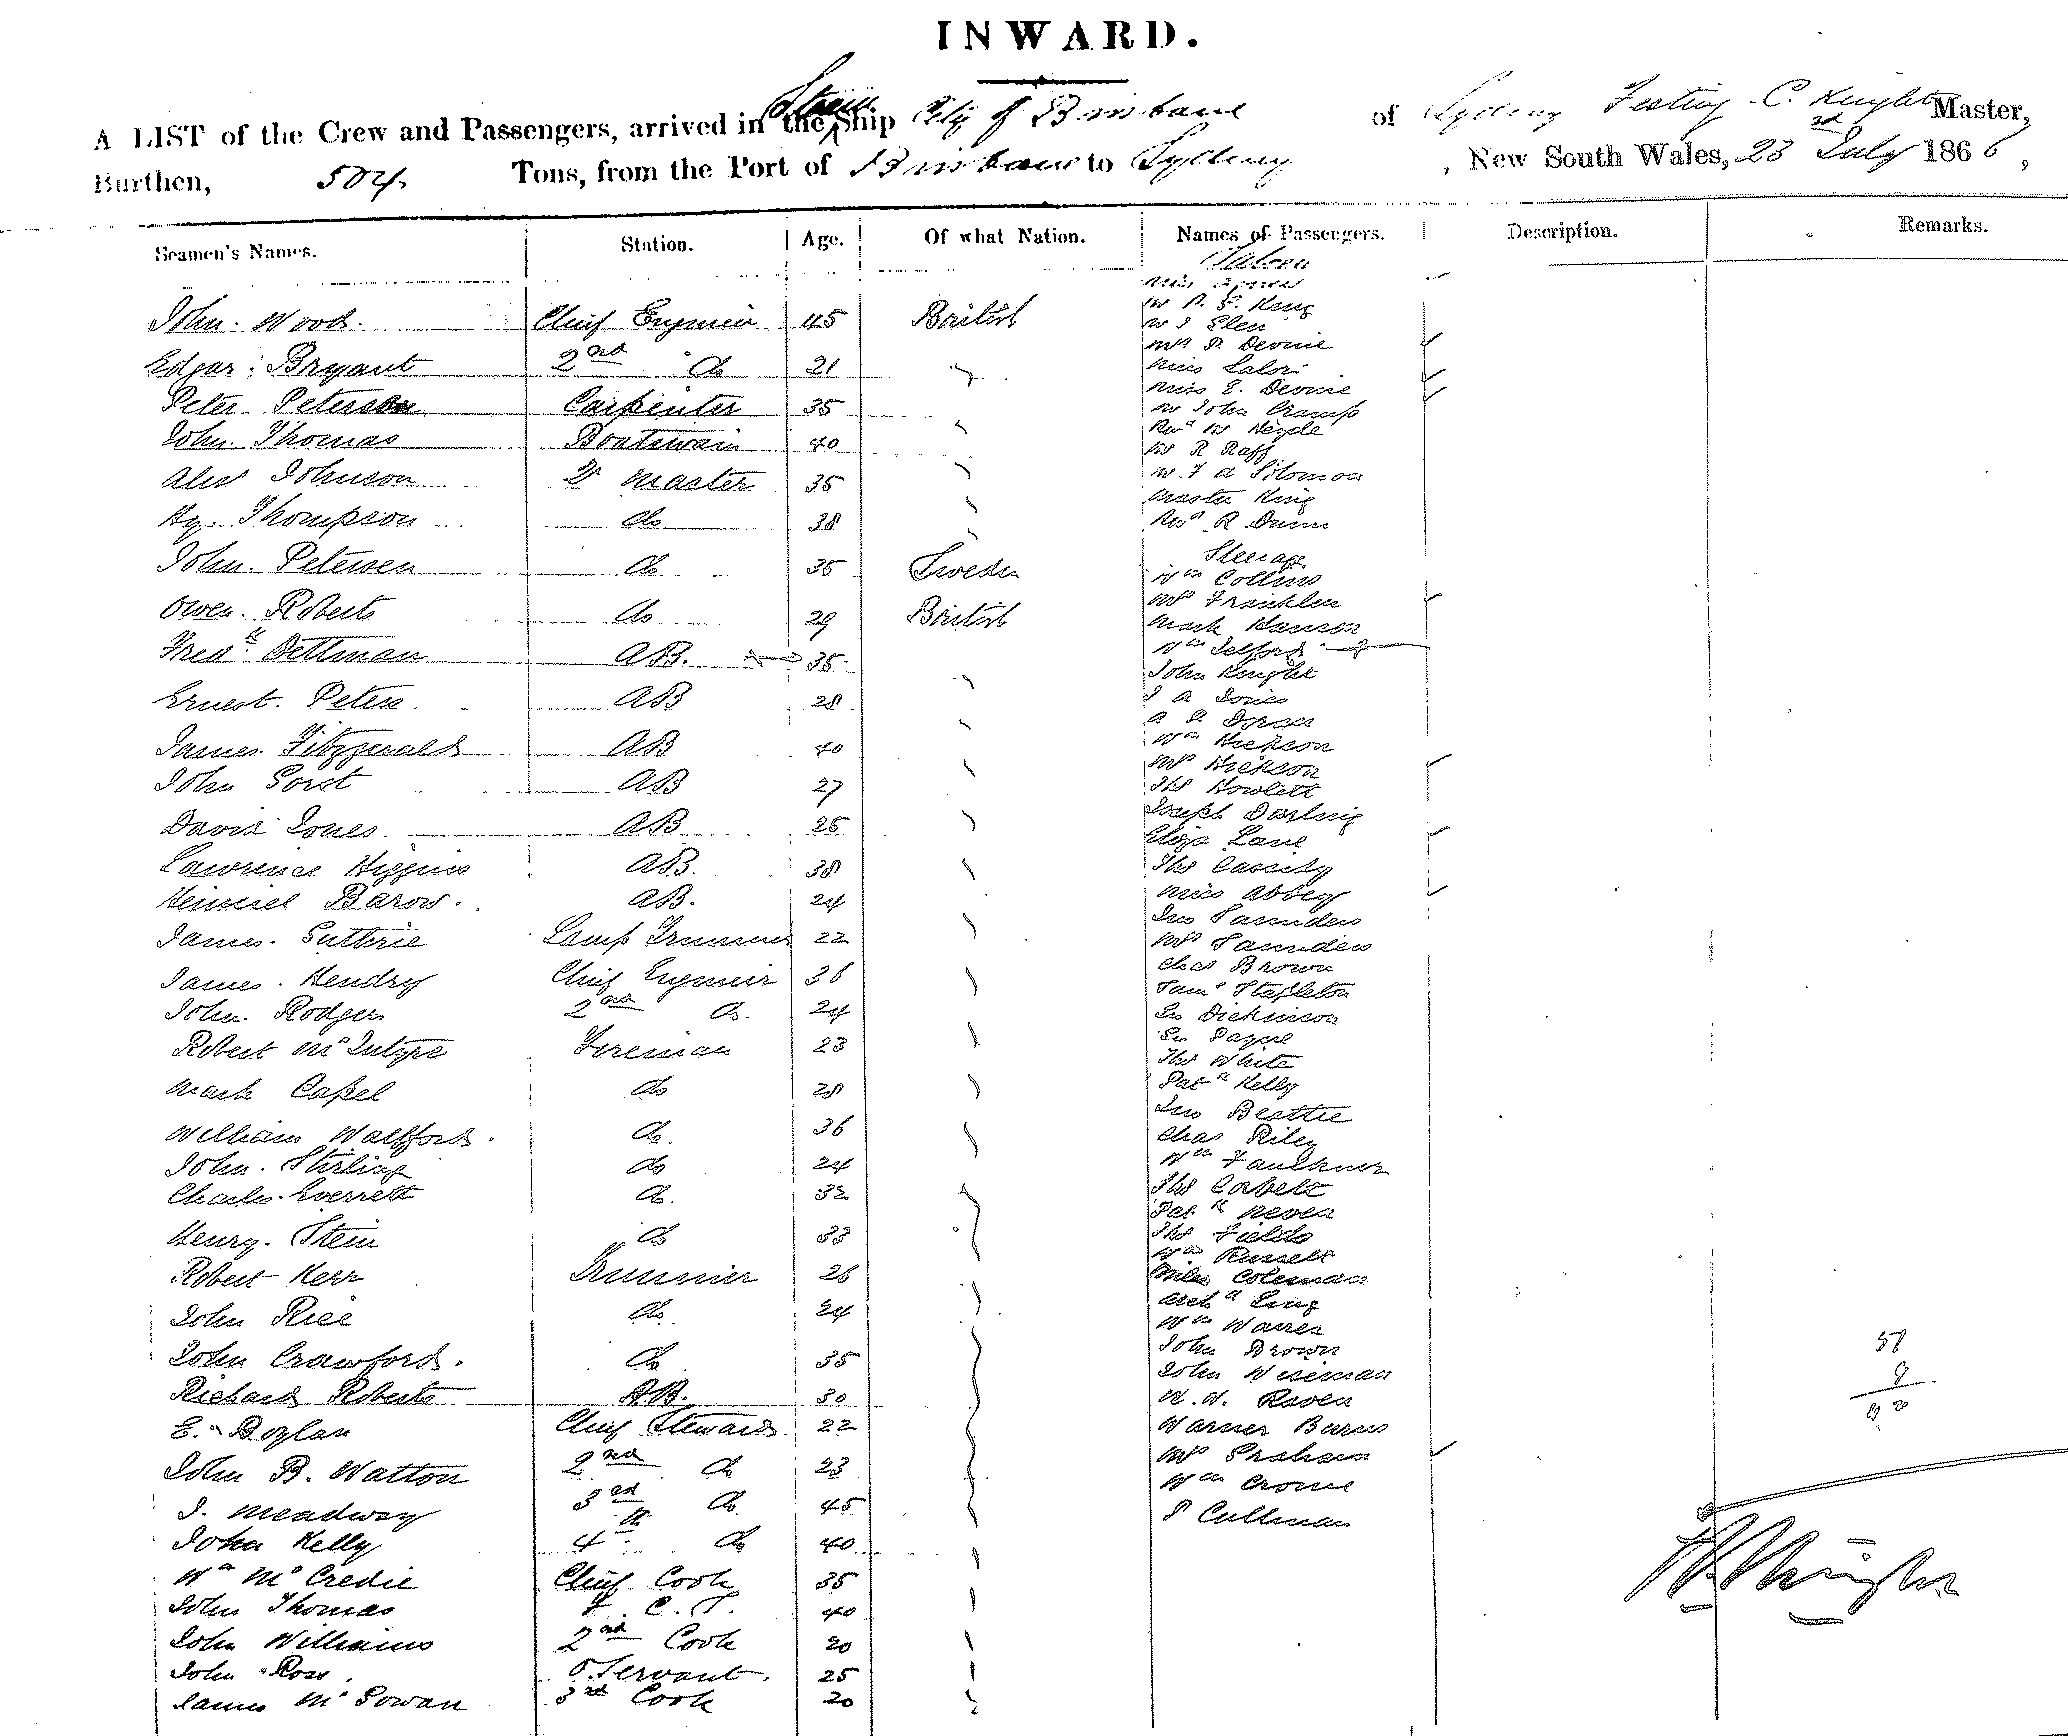 INWARD.
A LIST of the Crew and Passengers, arrived in the Steam Ship City of Brisbane of Sydney C. Knight Master,
Burthen, 504 Tons, from the Port of Brisbane to Sydney, New South Wales, 23rd July 1866,
Seamen's Names. Station. Age. Of what Nation. Names of Passengers. Description. Remarks.
Saloon
John Wood Chief 45 British
Edgar Bryant 2nd do 21
Peter Peterson Carpenter 35
John Thomas Boatswain 40
Alex Johnson Qr Master 35
Hy. Thompson do 38
John Petersen do 35 Sweden
Owen Roberts do 29 British
Fredk Dettman AB. 35
Ernest Peters AB 28
James Fitzgerald AB 40
John AB 27
David Jones AB 25
Lawrence Higgins AB. 38
Barow. AB. 24
James Guthrie Lamp Trimmer 22
James Hendry Chief Engineer 36
John Rodger 2nd do. 24
Robert McIntyre Fireman 23
Mark Caßel do 28
William Walford do. 36
John Stirling do 24
Charles Everrett do. 32
Henry Stein do 33
Robert Kerr Trimmer 26
John Rice do 24
John Crawford. do 35
Richard Roberts AB. 30
E. Boylan Chief Steward 22
John B. Watton 2nd do 23
J. Meadway 3rd do 45
John Kelly 4th do 40
Wm McCredie Chief Cook 35
John Thomas 40
John Williams 2nd Cook 20
John Ross Servant. 25
James McGowan 3rd Cook 20
Mr R. F. King
Mr J Glen
Mrs P. Devine
Miss Lalor
Miss E. Devine
Mr John Cramp
Mr R Raff
Mr J A Solomon
Master King
Revd R Dunn
Steerage
Wm Collins
Mrs Franklin
Mark Hanson
Wm Telford
John Knight
J A Jones
Wm Hickson
Mrs Hickson
Thos Howlett
Joseph Darling
Eliza Lane
Thos Cassidy
Miss Abbey
Jno Saunders
Mrs Saunders
Chas Brown
Saml Stapleton
Geo Dickinson
Geo Payne
Thos White
Patk Kelly
Jno Beattie
Chas Riley
Wm Faulkner
Thos Corbett
Thos Fields
Wm Russell
Miles Coleman
Wm Warren
John Brown
John Wiseman
W. W. Raven
Warner Burns
Mrs Graham
Wm Crome
P Cullinan